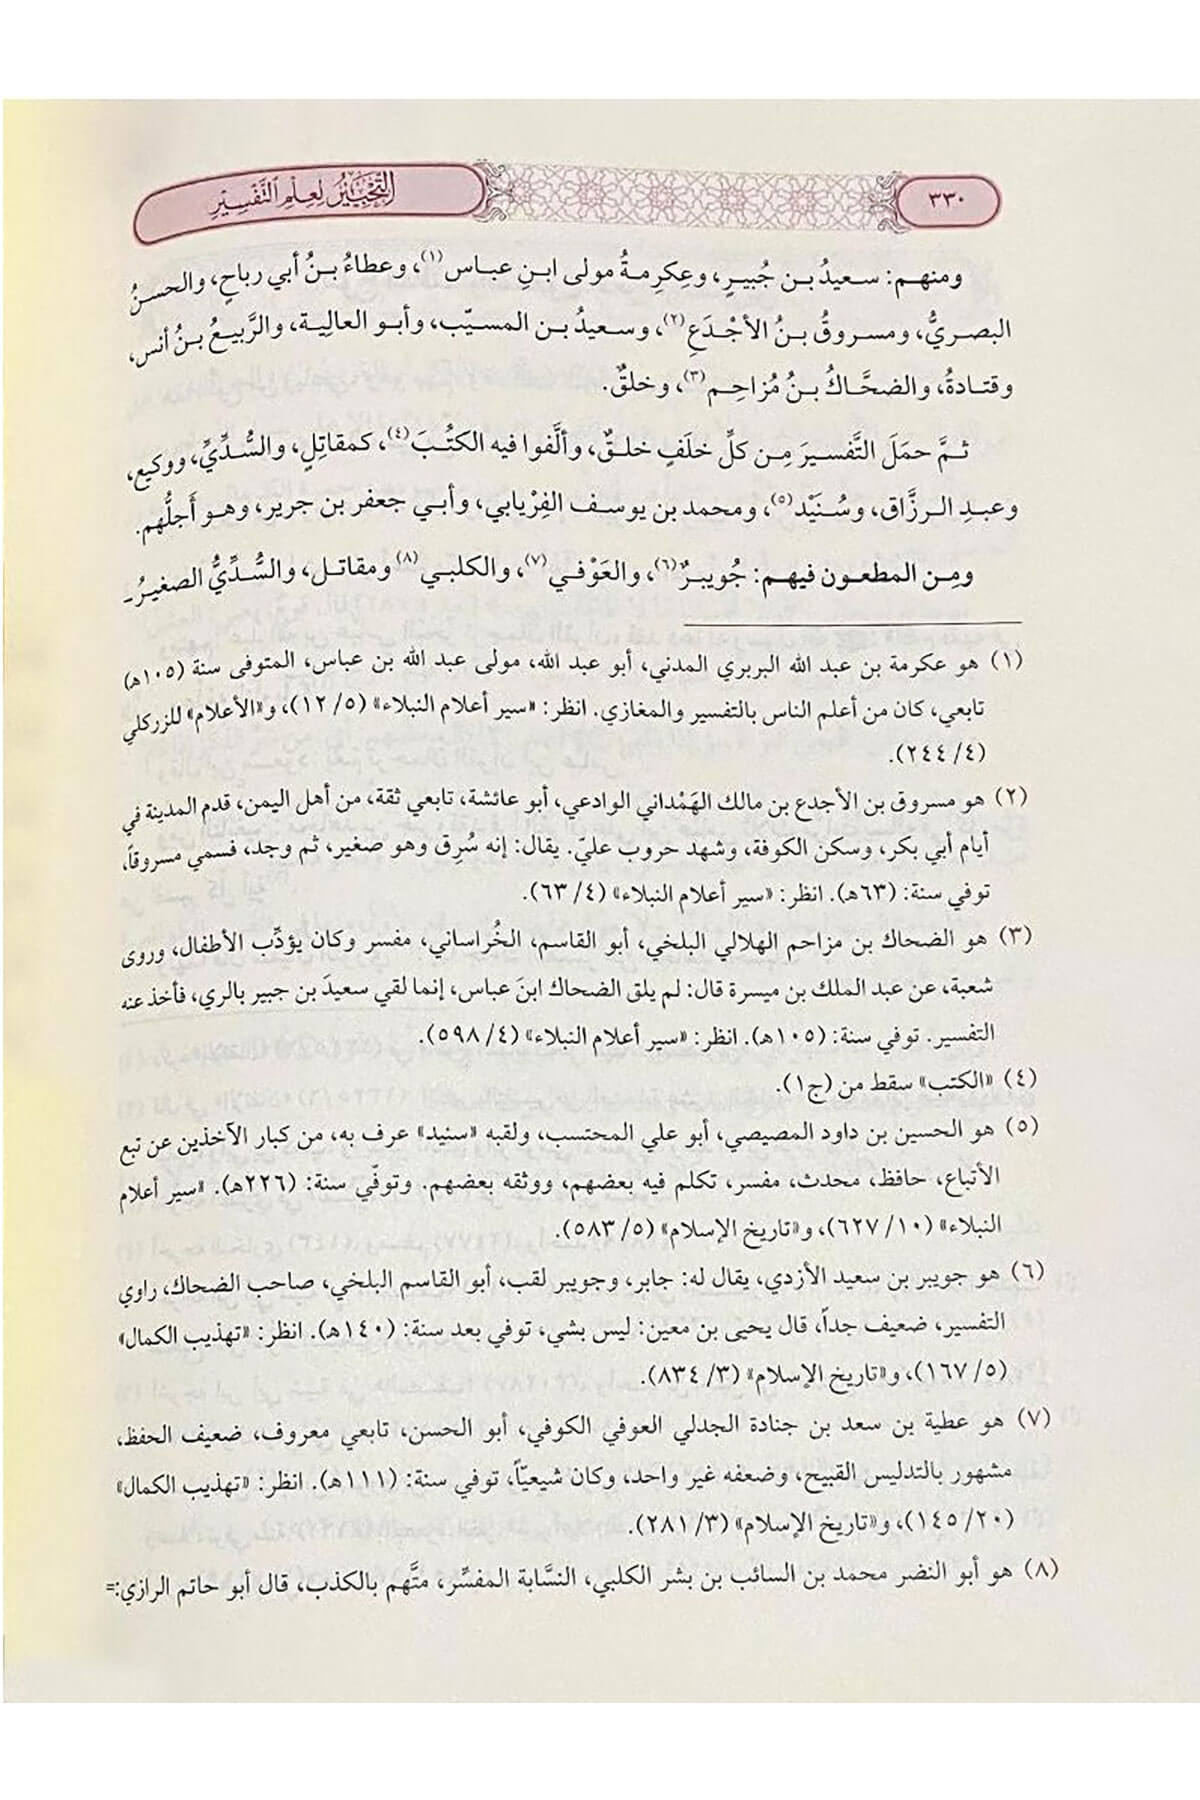 ٣٣٠
التَّحْبِيْرُ لِعِلْمِ التَّفْسِيْرِ
ومنهم: سعيدُ بن جُبيرٍ، وعِكرِمةُ مولى ابنِ عباس(١)، وعطاءُ بنُ أبي رباحٍ، والحسنُ
البصريُّ، ومسروقُ بنُ الأجْدَعِ(٢)، وسعيدُ بن المسيّب، وأبو العالِية، والرَّبيعُ بنُ أنس،
وقتادةُ، والضحَّاكُ بنُ مُزاحِم(٣)، وخلقٌ.
ثمَّ حمَلَ التَّفسيرَ مِن كلِّ خلَفٍ خلقٌ، وألَّفوا فيه الكتُبَ(٤)، كمقاتِلٍ، والسُّدِّيِّ، ووكيع،
وعبدِ الرزَّاق، وسُنَيْد(٥)، ومحمد بن يوسف الفِرْيابي، وأبي جعفر بن جرير، وهو أَجلُّهم.
ومِن المطعون فيهم: جُويبرٌ(٦)، والعَوْفي(٧)، والكلبي(٨) ومقاتل، والسُّدِّيُّ الصغيرُ ـ
(١) هو عكرمة بن عبد الله البربري المدني، أبو عبد الله، مولى عبد الله بن عباس، المتوفى سنة (١٠٥هـ)
تابعي، كان من أعلم الناس بالتفسير والمغازي. انظر: «سير أعلام النبلاء» (٥/ ١٢)، و«الأعلام» للزركلي
(٤/ ٢٤٤).
(٢) هو مسروق بن الأجدع بن مالك الهَمْداني الوادعي، أبو عائشة، تابعي ثقة، من أهل اليمن، قدم المدينة في
أيام أبي بكر، وسكن الكوفة، وشهد حروب عليّ. يقال: إنه سُرِق وهو صغير، ثم وجد، فسمي مسروقاً،
توفي سنة: (٦٣هـ). انظر: «سير أعلام النبلاء» (٤/ ٦٣).
(٣) هو الضحاك بن مزاحم الهلالي البلخي، أبو القاسم، الخُراساني، مفسر وكان يؤدِّب الأطفال، وروى
شعبة، عن عبد الملك بن ميسرة قال: لم يلق الضحاك ابنَ عباس، إنما لقي سعيدَ بن جبير بالري، فأخذ عنه
التفسير. توفي سنة: (١٠٥هـ). انظر: «سير أعلام النبلاء» (٤/ ٥٩٨).
(٤) «الكتب» سقط من (ج١).
(٥) هو الحسين بن داود المصيصي، أبو علي المحتسب، ولقبه «سنيد» عرف به، من كبار الآخذين عن تبع
الأتباع، حافظ، محدث، مفسر، تكلم فيه بعضهم، ووثقه بعضهم. وتوفّي سنة: (٢٢٦هـ). «سير أعلام
النبلاء» (١٠/ ٦٢٧)، و«تاريخ الإسلام» (٥/ ٥٨٣).
(٦) هو جويبر بن سعيد الأزدي، يقال له: جابر، وجويبر لقب، أبو القاسم البلخي، صاحب الضحاك، راوي
التفسير، ضعيف جداً، قال يحيى بن معين: ليس بشي، توفي بعد سنة: (١٤٠هـ). انظر: «تهذيب الكمال»
(٥/ ١٦٧)، و«تاريخ الإسلام» (٣/ ٨٣٤).
(٧) هو عطية بن سعد بن جنادة الجدلي العوفي الكوفي، أبو الحسن، تابعي معروف، ضعيف الحفظ،
مشهور بالتدليس القبيح، وضعفه غير واحد، وكان شيعيّاً، توفي سنة: (١١١هـ). انظر: «تهذيب الكمال»
(٢٠/ ١٤٥)، و«تاريخ الإسلام» (٣/ ٢٨١).
(٨) هو أبو النضر محمد بن السائب بن بشر الكلبي، النسَّابة المفسِّر، متَّهم بالكذب، قال أبو حاتم الرازي:=